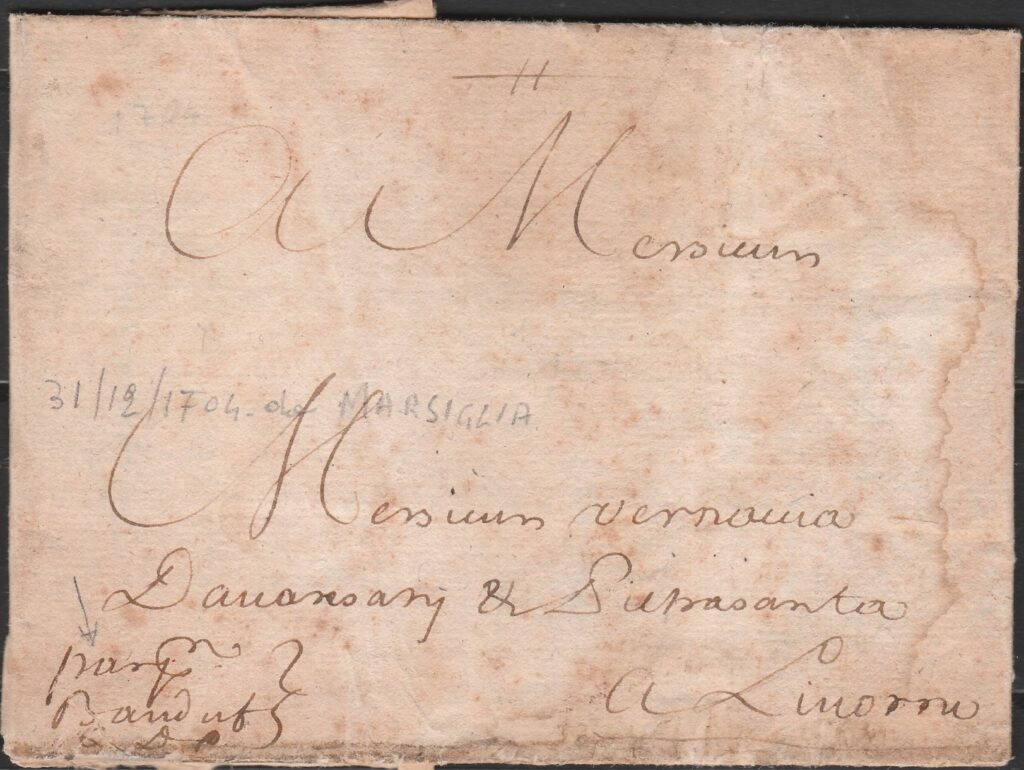 1704
A Messieurs
31/12/1704 da MARSIGLIA
Messieurs Vernaccia
Davansatij & Pietrasanta
A Livorne